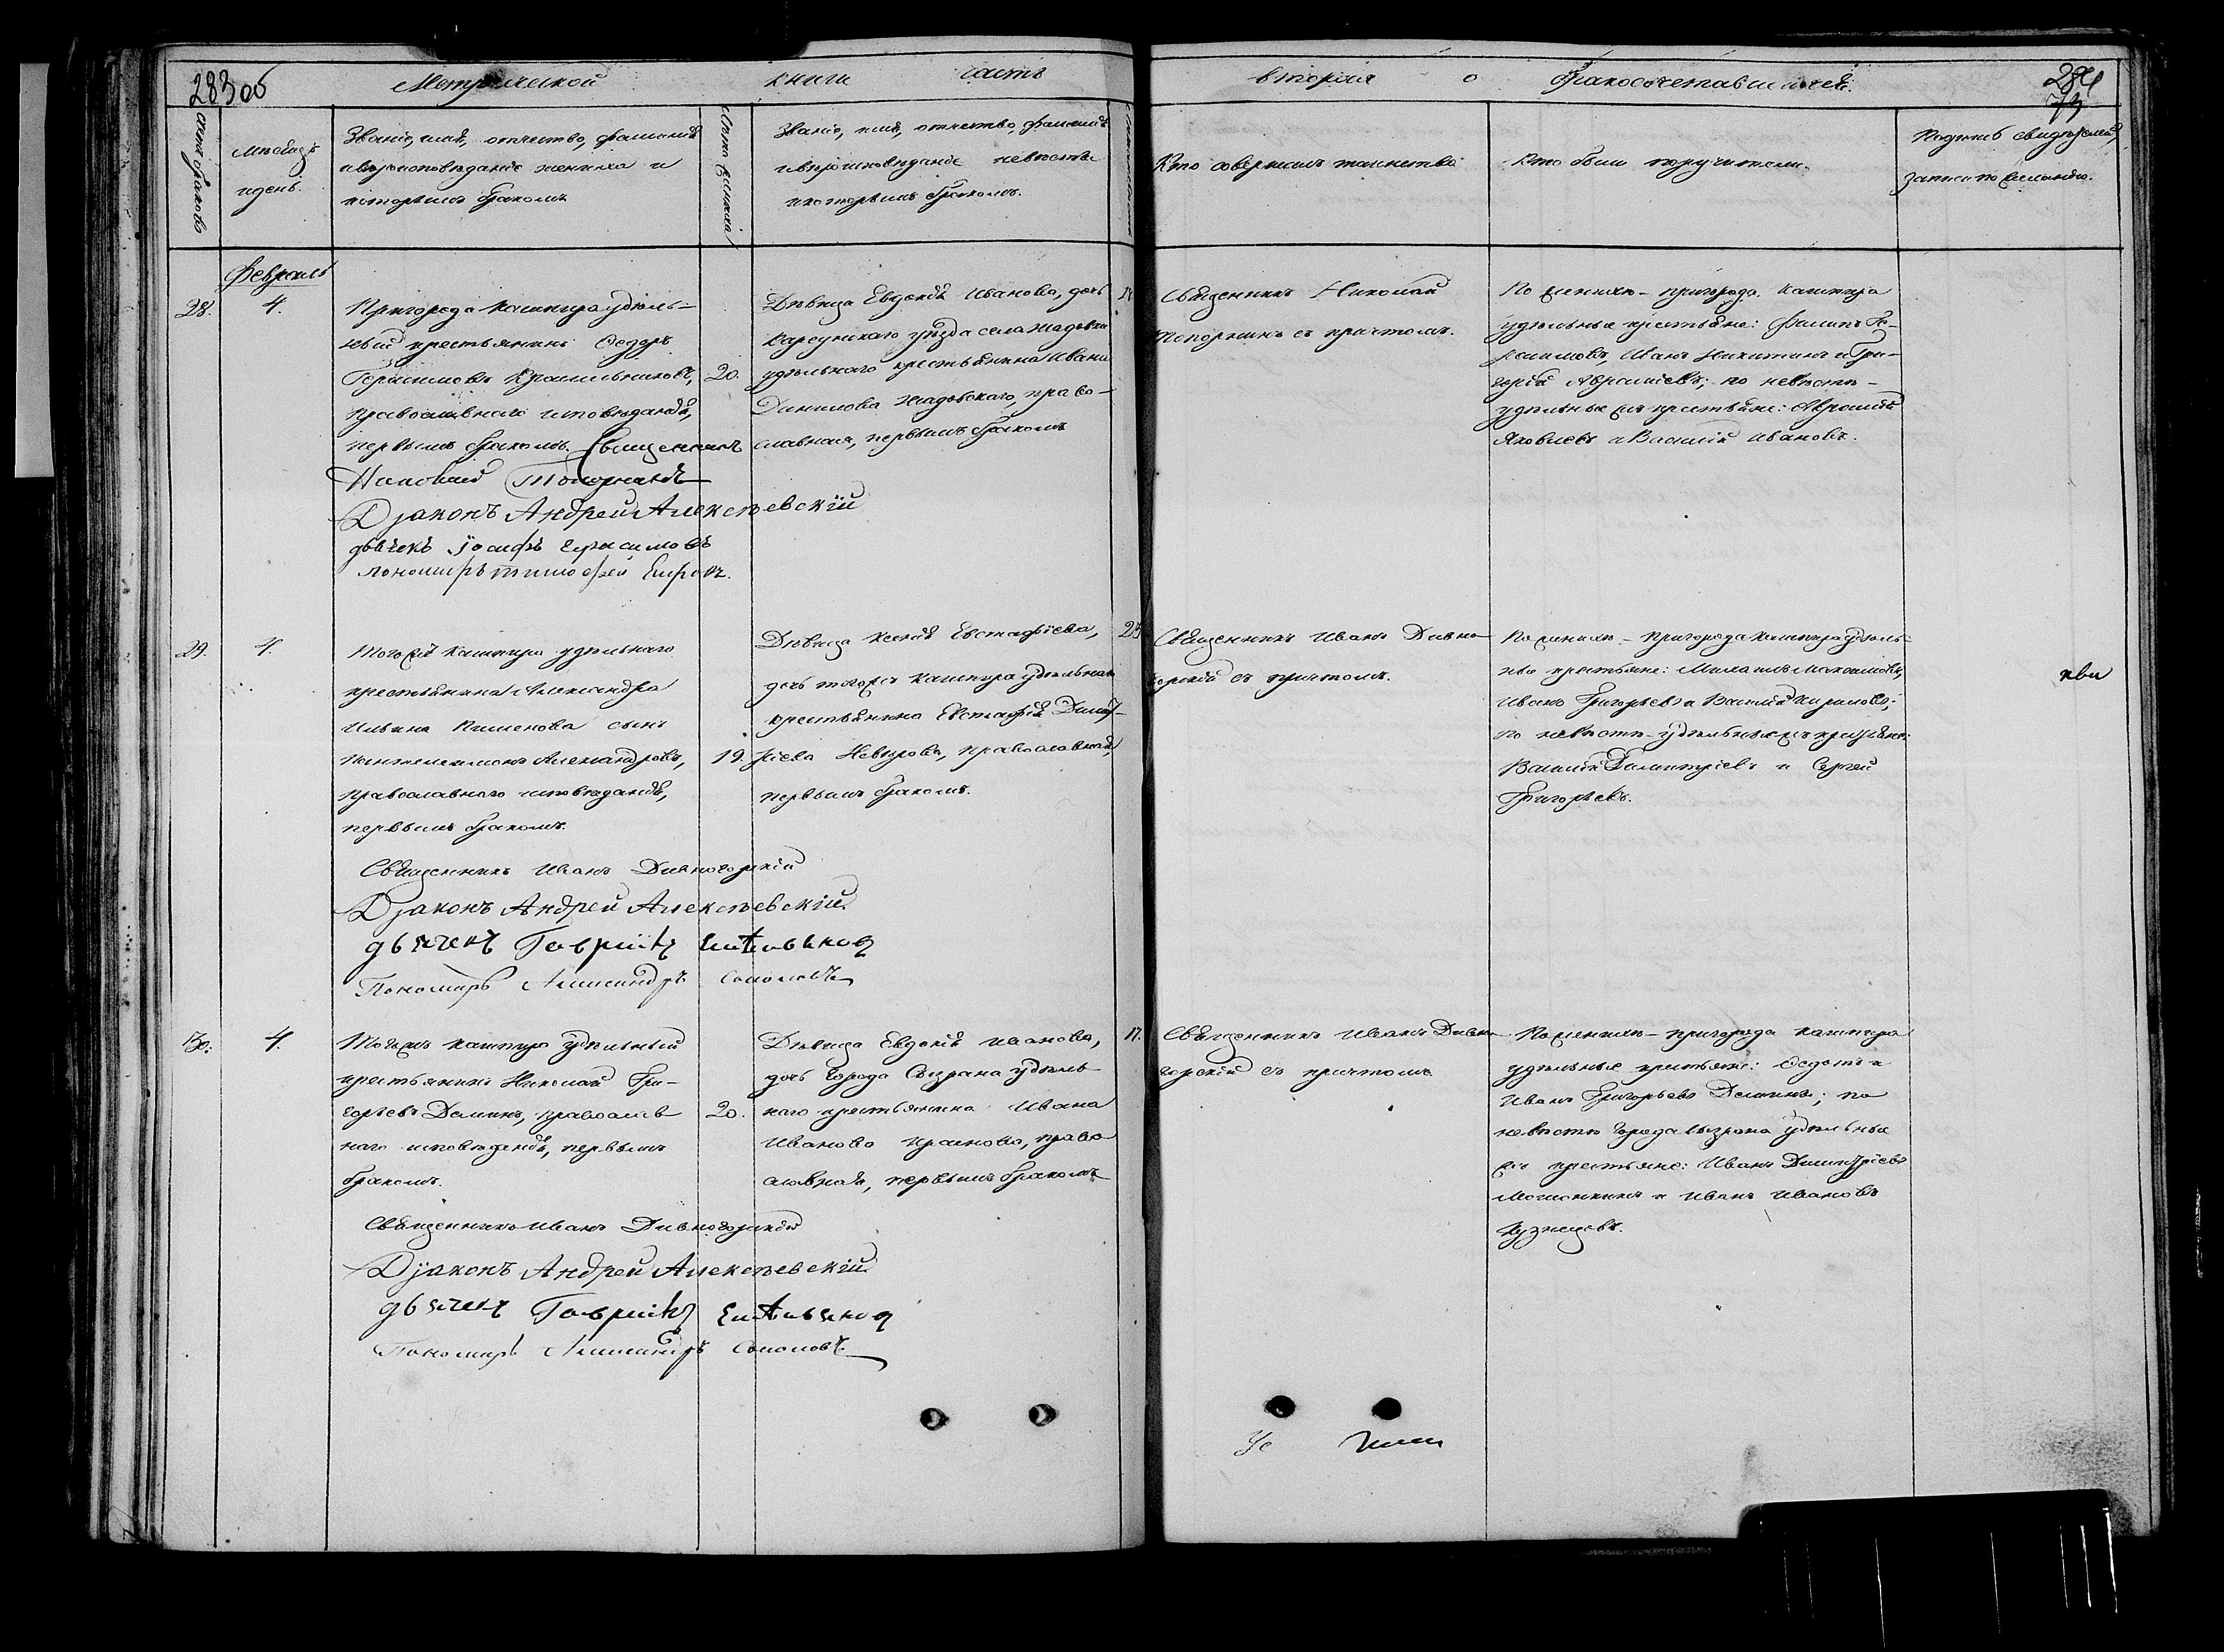 283об
Метрической книги часть вторая о бракосочетавшихся.
284
73
счетъ браковъ
Мѣсяцъ
и день.
Званіе, имя, отчество, фамилія
и вѣроисповѣданіе жениха и
которымъ бракомъ
Лѣта жениха
Званіе, имя, отчество, фамилія
и вѣроисповѣданіе невѣсты
и которымъ бракомъ.
Кто совершалъ таинство
Кто были поручители.
Подпись свидѣтелей
записи по желанію.
Февраль
28.
4.
Пригорода Кашпира удѣль-
ный крестьянинъ Ѳедоръ
Герасимовъ Красильниковъ,
православнаго исповѣданія,
первымъ бракомъ. Священникъ
Николай Топорнинъ
Діаконъ Андрей Алексѣевскій
дьячекъ Іосифъ Герасимовъ
пономарь Тимофей
20.
Дѣвица Евдокія Иванова, дочь
Карсунскаго уѣзда села Жадовки
удѣльнаго крестьянина Ивана
Данилова Жадовскаго, право-
славная, первымъ бракомъ
Священникъ Николай
Топорнинъ съ причтомъ.
По женихѣ - пригорода Кашпира
удѣльные крестьяне: Филипъ Ге-
расимовъ, Иванъ Никитинъ и Гри-
горій Абрамовъ; по невѣстѣ -
удѣльные же крестьяне: Авраамій
Яковлевъ и Василій Ивановъ.
29.
4.
Того же Кашпира удѣльнаго
крестьянина Александра
Ильина Пименова сынъ
Пантелеимонъ Александровъ,
православнаго исповѣданія,
первымъ бракомъ.
Священникъ Иванъ Дивногорскій
Діаконъ Андрей Алексѣевскій
дьячекъ Гавріилъ
Пономарь Александръ Соколовъ
19.
Дѣвица Ксенія Евстафіева,
дочь того же Кашпира удѣльнаго
крестьянина Евстафія Димит-
ріева Невѣрова, православная,
первымъ бракомъ.
Священникъ Иванъ Дивно-
горскій съ причтомъ.
По женихѣ - пригорода Кашпира удѣль-
ные крестьяне: Михаилъ Максимовъ,
Иванъ Григорьевъ и Василій Кириловъ;
по невѣстѣ - удѣльные же крестьяне:
Василій Димитріевъ и Сергей
Григорьевъ.
30.
4.
Того же Кашпира удѣльный
крестьянинъ Николай Гри-
горьевъ Деминъ, православ
наго исповѣданія, первымъ
бракомъ.
Священникъ Иванъ Дивногорскій
Діаконъ Андрей Алексѣевскій
дьячекъ Гавріилъ
Пономарь Александръ Соколовъ
20.
Дѣвица Евдокія Иванова,
дочь города Сызрана удѣль-
наго крестьянина Ивана
Иванова Краснова, право
славная, первымъ бракомъ
17.
Священникъ Иванъ Дивно
горскій съ причтомъ.
По женихѣ - пригорода Кашпира
удѣльные крестьяне: Ѳедотъ и
Иванъ Григорьевы Демины; по
невѣстѣ города Сызрана удѣльные
же крестьяне: Иванъ Димитріевъ
и Иванъ Ивановъ
Кузнецовъ.